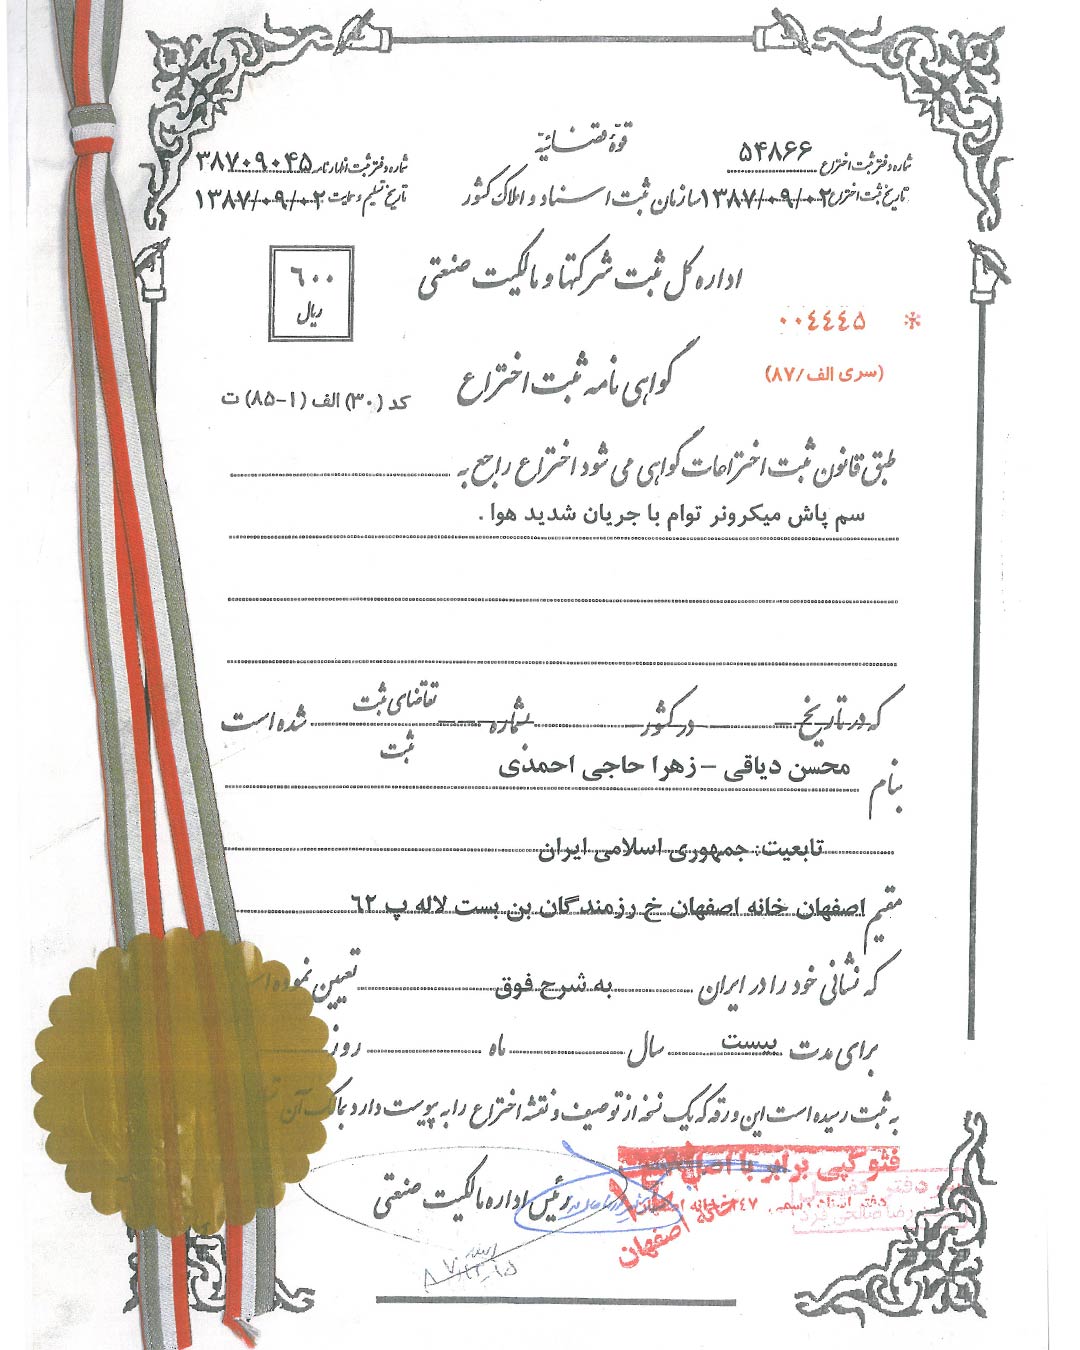 قوهٔ قضائیه
شماره دفتر ثبت اختراع ۵۴۸۶۶
شماره دفتر ثبت اظهارنامه ۳۸۷۰۹۰۴۵
سازمان ثبت اسناد و املاک کشور
تاریخ ثبت اختراع ۱۳۸۷/۰۹/۰۲
تاریخ تسلیم و حمایت ۱۳۸۷/۰۹/۰۲
اداره کل ثبت شرکتها و مالکیت صنعتی
۶۰۰
ریال
* ۰۰٤٤٤۵
(سری الف/۸۷)
گواهی نامه ثبت اختراع
کد (۳۰) الف (۱-۸۵) ت
طبق قانون ثبت اختراعات گواهی می شود اختراع راجع به
سم پاش میکرونر توام با جریان شدید هوا .
که در تاریخ در کشور بشماره تقاضای ثبت شده است
ثبت
بنام محسن دیاقی - زهرا حاجی احمدی
تابعیت: جمهوری اسلامی ایران
مقیم اصفهان خانه اصفهان خ رزمندگان بن بست لاله پ ٦٢
که نشانی خود را در ایران به شرح فوق تعیین نموده
برای مدت بیست سال ماه روز
به ثبت رسیده است این ورقه که یک نسخه از توصیف و نقشه اختراع را به پیوست دارد بمالک آن
فتوکپی برابر با اصل
سر دفتر
دفتر اسناد رسمی ۲۴۷ خانه اصفهان
خانه اصفهان
رئیس اداره مالکیت صنعتی